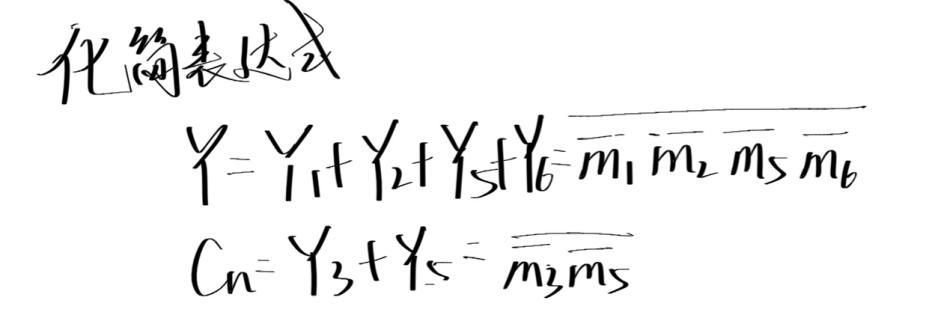 化简表达式
Y=Y₁+Y₂+Y₅+Y₆=\overline{\overline{m_1}\,\overline{m_2}\,\overline{m_5}\,\overline{m_6}}
Cn=Y₃+Y₅=\overline{\overline{m_3}\,\overline{m_5}}